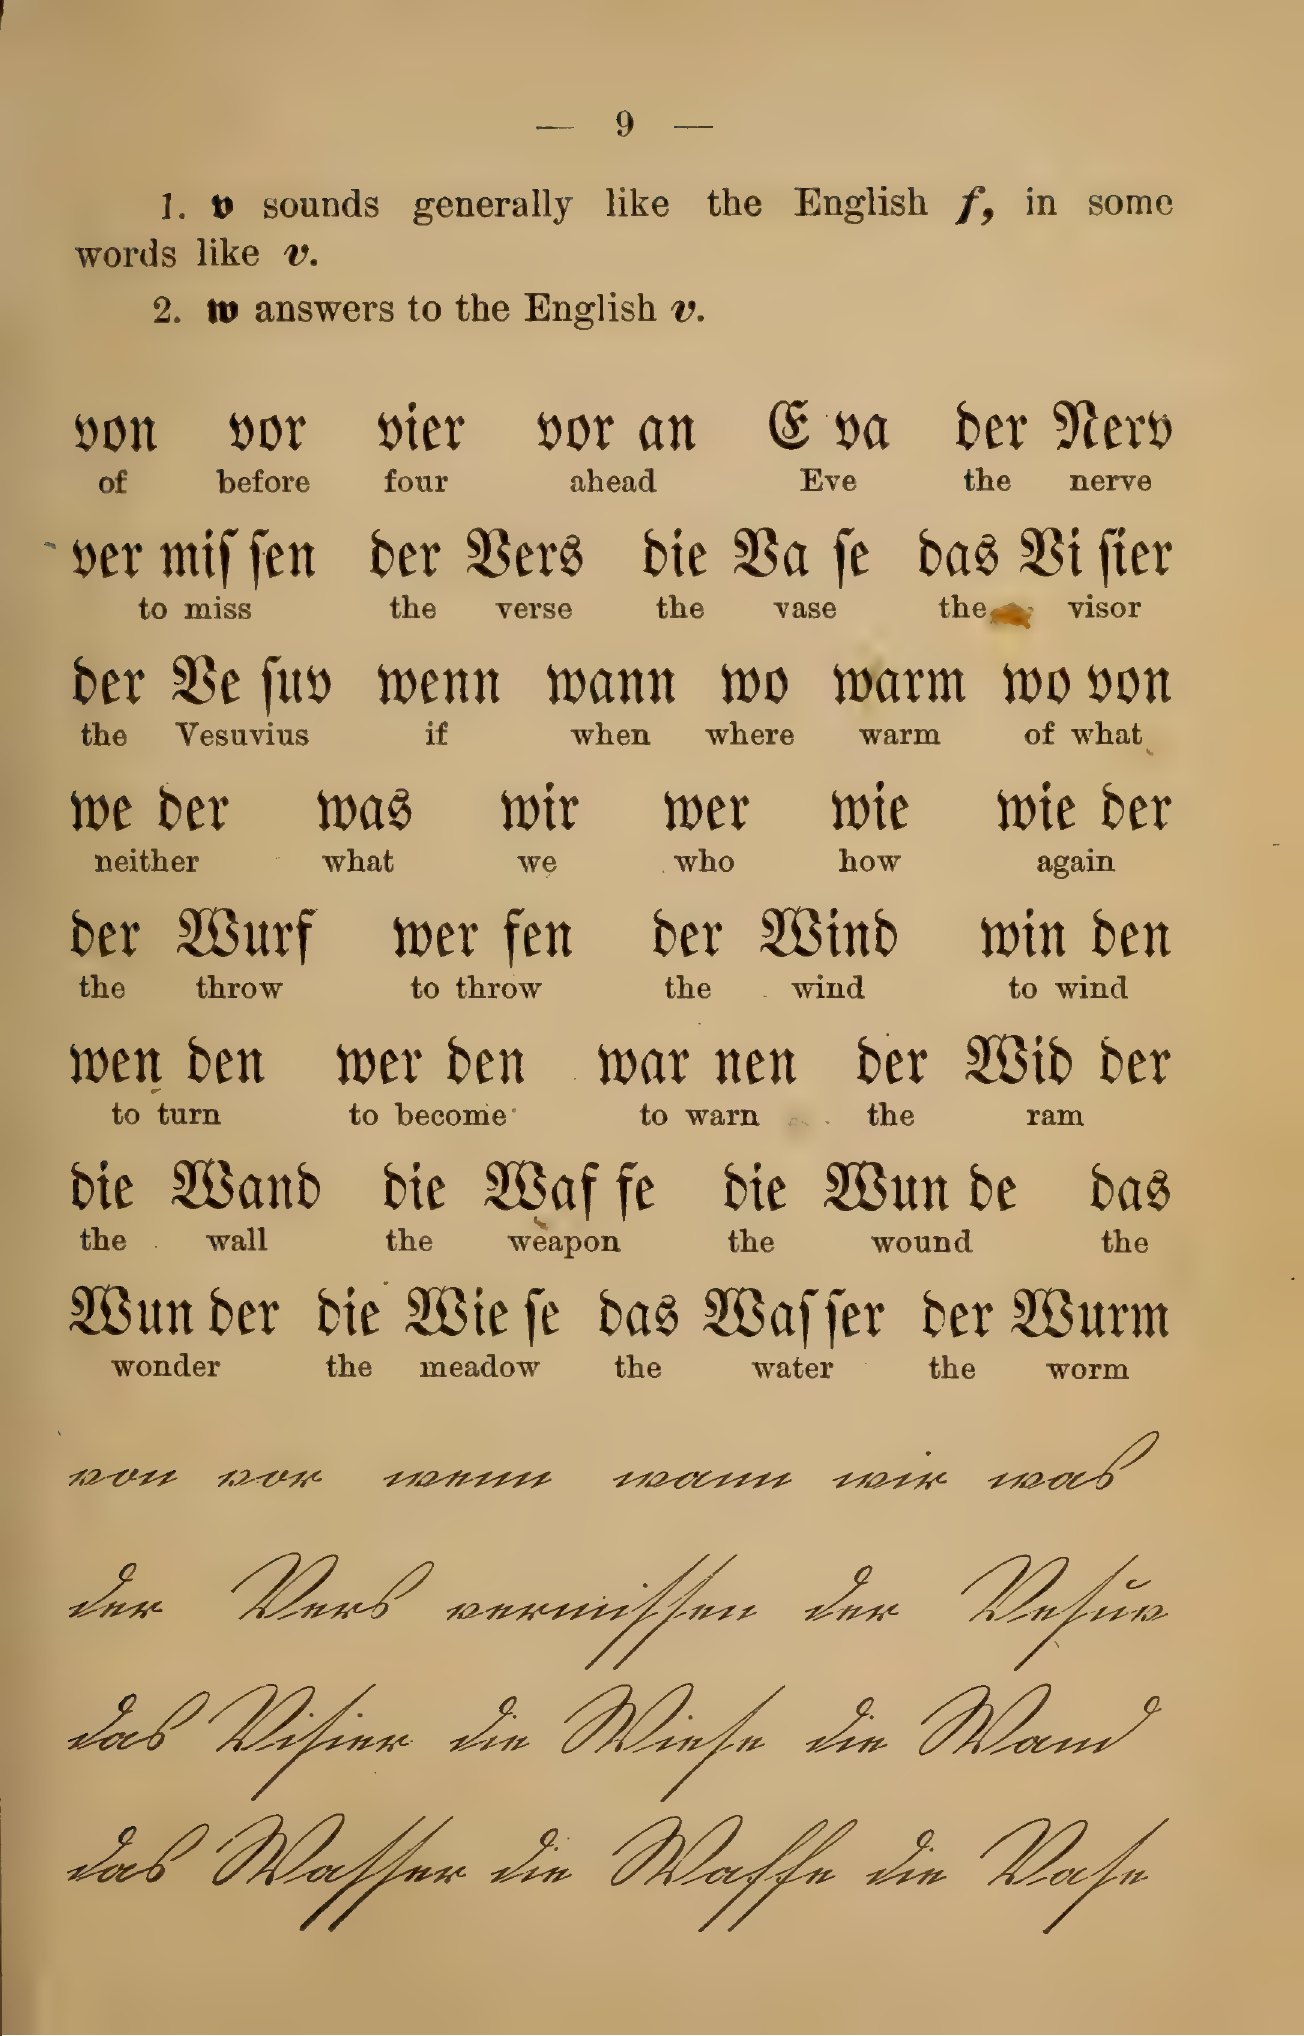 — 9 —
1. v sounds generally like the English f, in some
words like v.
2. w answers to the English v.
von vor vier vor an E va der Nerv
of before four ahead Eve the nerve
ver miſ ſen der Vers die Va ſe das Vi ſier
to miss the verse the vase the visor
der Ve ſuv wenn wann wo warm wo von
the Vesuvius if when where warm of what
we der was wir wer wie wie der
neither what we who how again
der Wurf wer fen der Wind win den
the throw to throw the wind to wind
wen den wer den war nen der Wid der
to turn to become to warn the ram
die Wand die Waf fe die Wun de das
the wall the weapon the wound the
Wun der die Wie ſe das Waſ ſer der Wurm
wonder the meadow the water the worm
von vor wenn wann wir was
der Vers vermiſſen der Veſuv
das Viſier die Wieſe die Wand
das Waſſer die Waffe die Vaſe